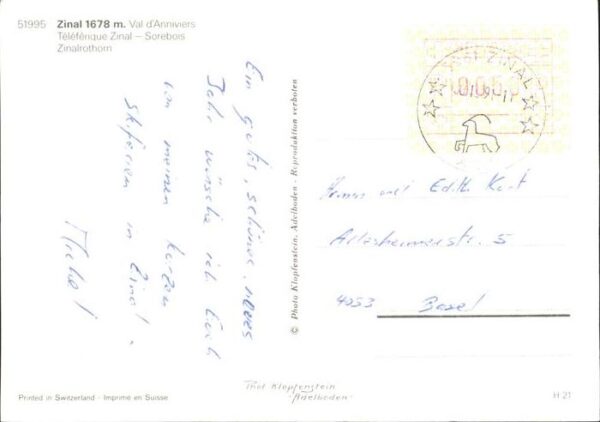 51995 Zinal 1678 m. Val d'Anniviers
Téléférique Zinal – Sorebois
Zinalrothorn
Ein gutes, schönes, neues
Jahr wünsche ich Euch
von meinen kurzen
Skiferien in Zinal.
© Photo Klopfenstein, Adelboden - Reproduktion verboten
ZINAL
und Edith
Arlesheimerstr. 5
4053 Basel
Printed in Switzerland - Imprimé en Suisse
Phot Klopfenstein
"Adelboden"
H 21